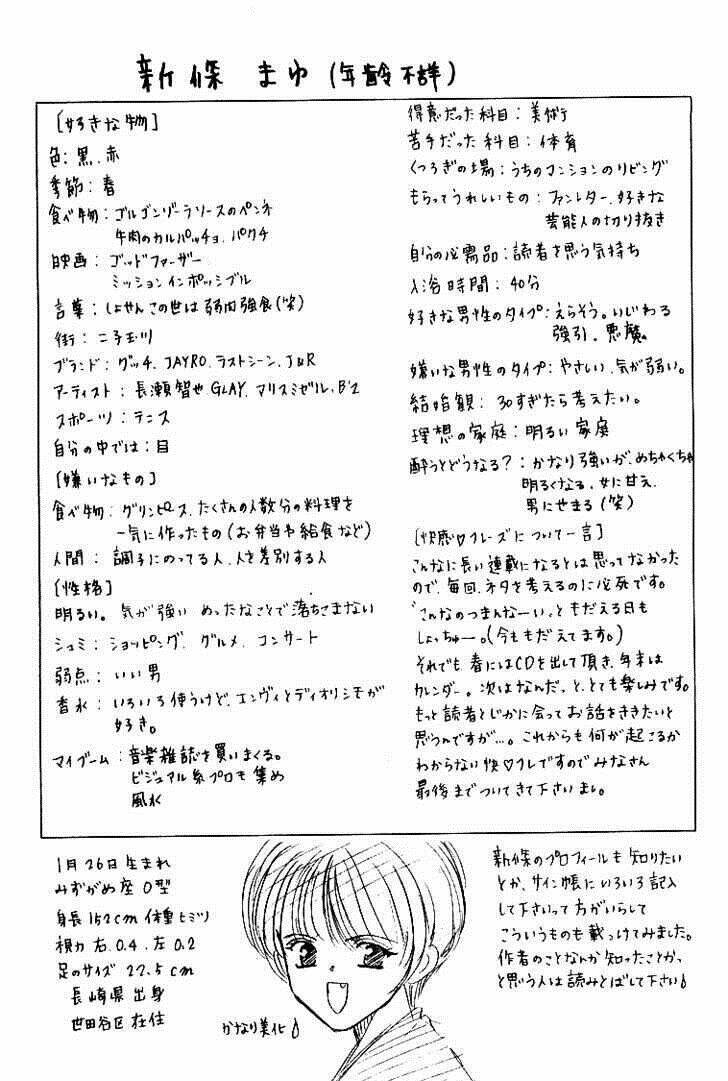 新條 まゆ (年齢不詳)
[好きな物]
色：黒、赤
季節：春
食べ物：ゴルゴンゾーラソースのペンネ
牛肉のカルパッチョ、パクチ
映画：ゴッドファーザー
ミッションインポッシブル
言葉：しょせんこの世は弱肉強食(笑)
街：二子玉川
ブランド：グッチ、JAYRO、ラストシーン、J&R
アーティスト：長瀬智也、GLAY、マリスミゼル、B'z
スポーツ：テニス
自分の中では：目
[嫌いなもの]
食べ物：グリンピース、たくさんの人数分の料理を
一気に作ったもの(お弁当や給食など)
人間：調子にのってる人、人を差別する人
[性格]
明るい。気が強い めったなことで落ちこまない
シュミ：ショッピング、グルメ、コンサート
弱点：いい男
香水：いろいろ使うけど、エンヴィとディオリシモが
好き。
マイブーム：音楽雑誌を買いまくる。
ビジュアル系プロモ集め
風水
得意だった科目：美術
苦手だった科目：体育
くつろぎの場：うちのマンションのリビング
もらってうれしいもの：ファンレター、好きな
芸能人の切り抜き
自分の必需品：読者を思う気持ち
入浴時間：40分
好きな男性のタイプ：えらそう。いじわる
強引、悪魔。
嫌いな男性のタイプ：やさしい、気が弱い。
結婚観：30すぎたら考えたい。
理想の家庭：明るい家庭
酔うとどうなる？：かなり強いが、めちゃくちゃ
明るくなる。女に甘え、
男にせまる(笑)
[快感♡フレーズについて一言]
こんなに長い連載になるとは思ってなかった
ので、毎回、ネタを考えるのに必死です。
「こんなのつまんなーい」ともだえる日も
しょっちゅー。(今ももだえてます。)
それでも春にはCDを出して頂き、年末は
カレンダー。次はなんだっと、とても楽しみです。
もっと読者とじかに会ってお話をききたいと
思うんですが…。これからも何が起こるか
わからない快♡フレですのでみなさん
最後までついてきて下さいまし。
1月26日生まれ
みずがめ座 O型
身長152cm 体重ヒミツ
視力 右、0.4、左 0.2
足のサイズ 22.5cm
長崎県出身
世田谷区在住
かなり美化♪
新條のプロフィールも知りたい
とか、サイン帳にいろいろ記入
して下さいって方がいらして
こういうものも載っけてみました。
作者のことなんか知ったことかっ
と思う人は読みとばして下さい♪